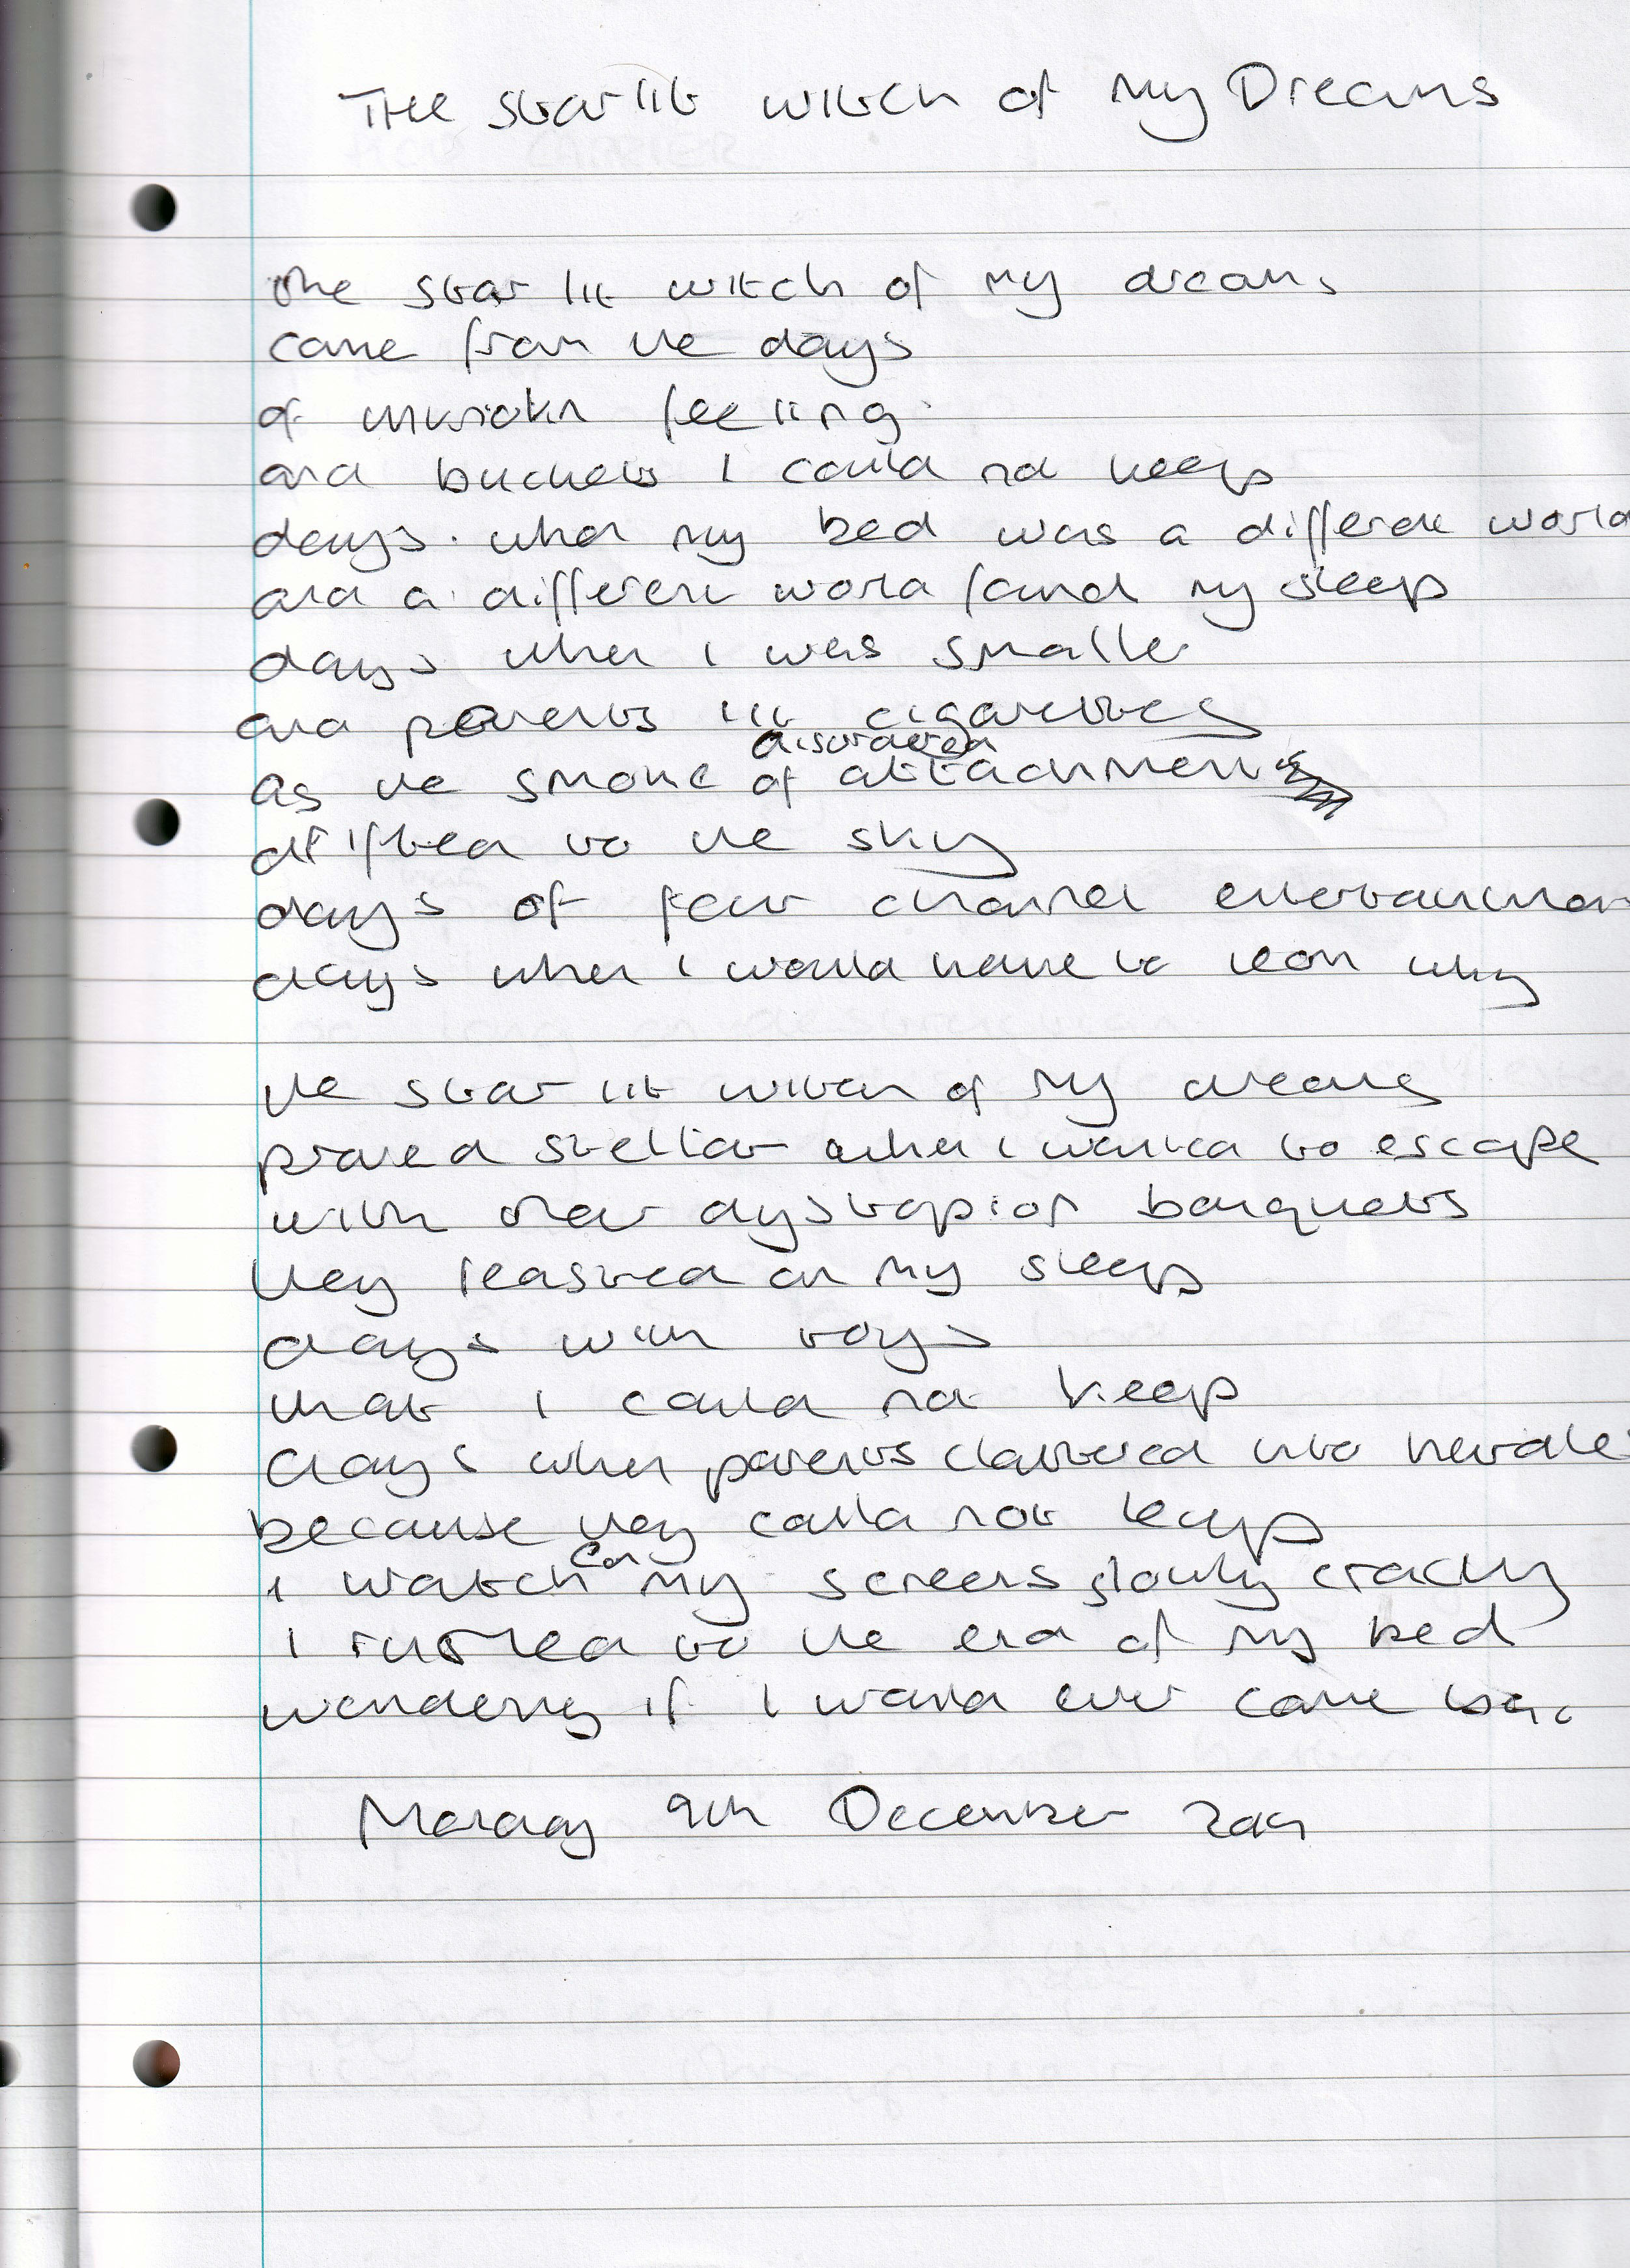 The starlit witch of My Dreams
the star lit witch of my dreams
came from the days
of unwoken feeling
and buckets I could not keep
days when my bed was a different world
and a different world found my sleep
days when I was smaller
and parents lit cigarettes
disordered
as the smoke of attachment
drifted to the sky
days of four channel
days when I would have to learn why
the star lit witch of my dreams
proved stellar when I wanted to escape
with other banquets
they feasted on my sleep
days with toys
that I could not keep
days when parents clattered into
because they could not
I watch my screens slowly
I rushed to the end of my bed
wondering if I would ever come
Monday 9th December